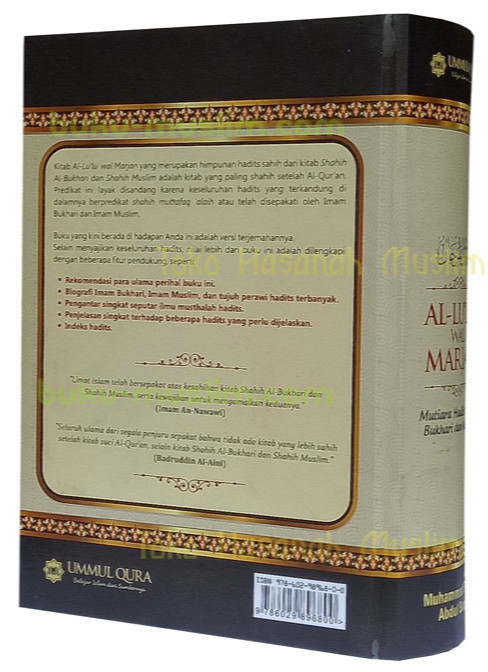 Kitab Al-Lu'lu wal Marjan yang merupakan himpunan hadits sahih dari kitab Shahih
Al-Bukhari dan Shahih Muslim adalah kitab yang paling shahih setelah Al-Qur'an.
Predikat ini layak disandang karena keseluruhan hadits yang terkandung di
dalamnya berpredikat shahih muttafaq alaih atau telah disepakati oleh Imam
Bukhari dan Imam Muslim.
Buku yang kini berada di hadapan Anda ini adalah versi terjemahannya.
Selain menyajikan keseluruhan hadits, nilai lebih dari buku ini adalah dilengkapi
dengan beberapa fitur pendukung, seperti:
• Rekomendasi para ulama perihal buku ini.
• Biografi Imam Bukhari, Imam Muslim, dan tujuh perawi hadits terbanyak.
• Pengantar singkat seputar ilmu musthalah hadits.
• Penjelasan singkat terhadap beberapa hadits yang perlu dijelaskan.
• Indeks hadits.
"Umat islam telah bersepakat atas kesahihan kitab Shahih Al-Bukhari dan
Shahih Muslim, serta kewajiban untuk mengamalkan keduanya."
(Imam An-Nawawi)
"Seluruh ulama dari segala penjuru sepakat bahwa tidak ada kitab yang lebih sahih
setelah kitab suci Al-Qur'an, selain Shahih Al-Bukhari dan Shahih Muslim."
(Badruddin Al-Aini)
UMMUL QURA
Belajar Islam dari Sumbernya
ISBN 978-602-98968-0-0
9786029896800
UMMUL QURA
AL-LU'L
WAL
MARJA
Mutiara Hadi
Bukhari dan
Muhammad
Abdul B
buku-muslim.com
Toko Hasanah Muslim
buku-muslim.com
Toko Hasanah Muslim